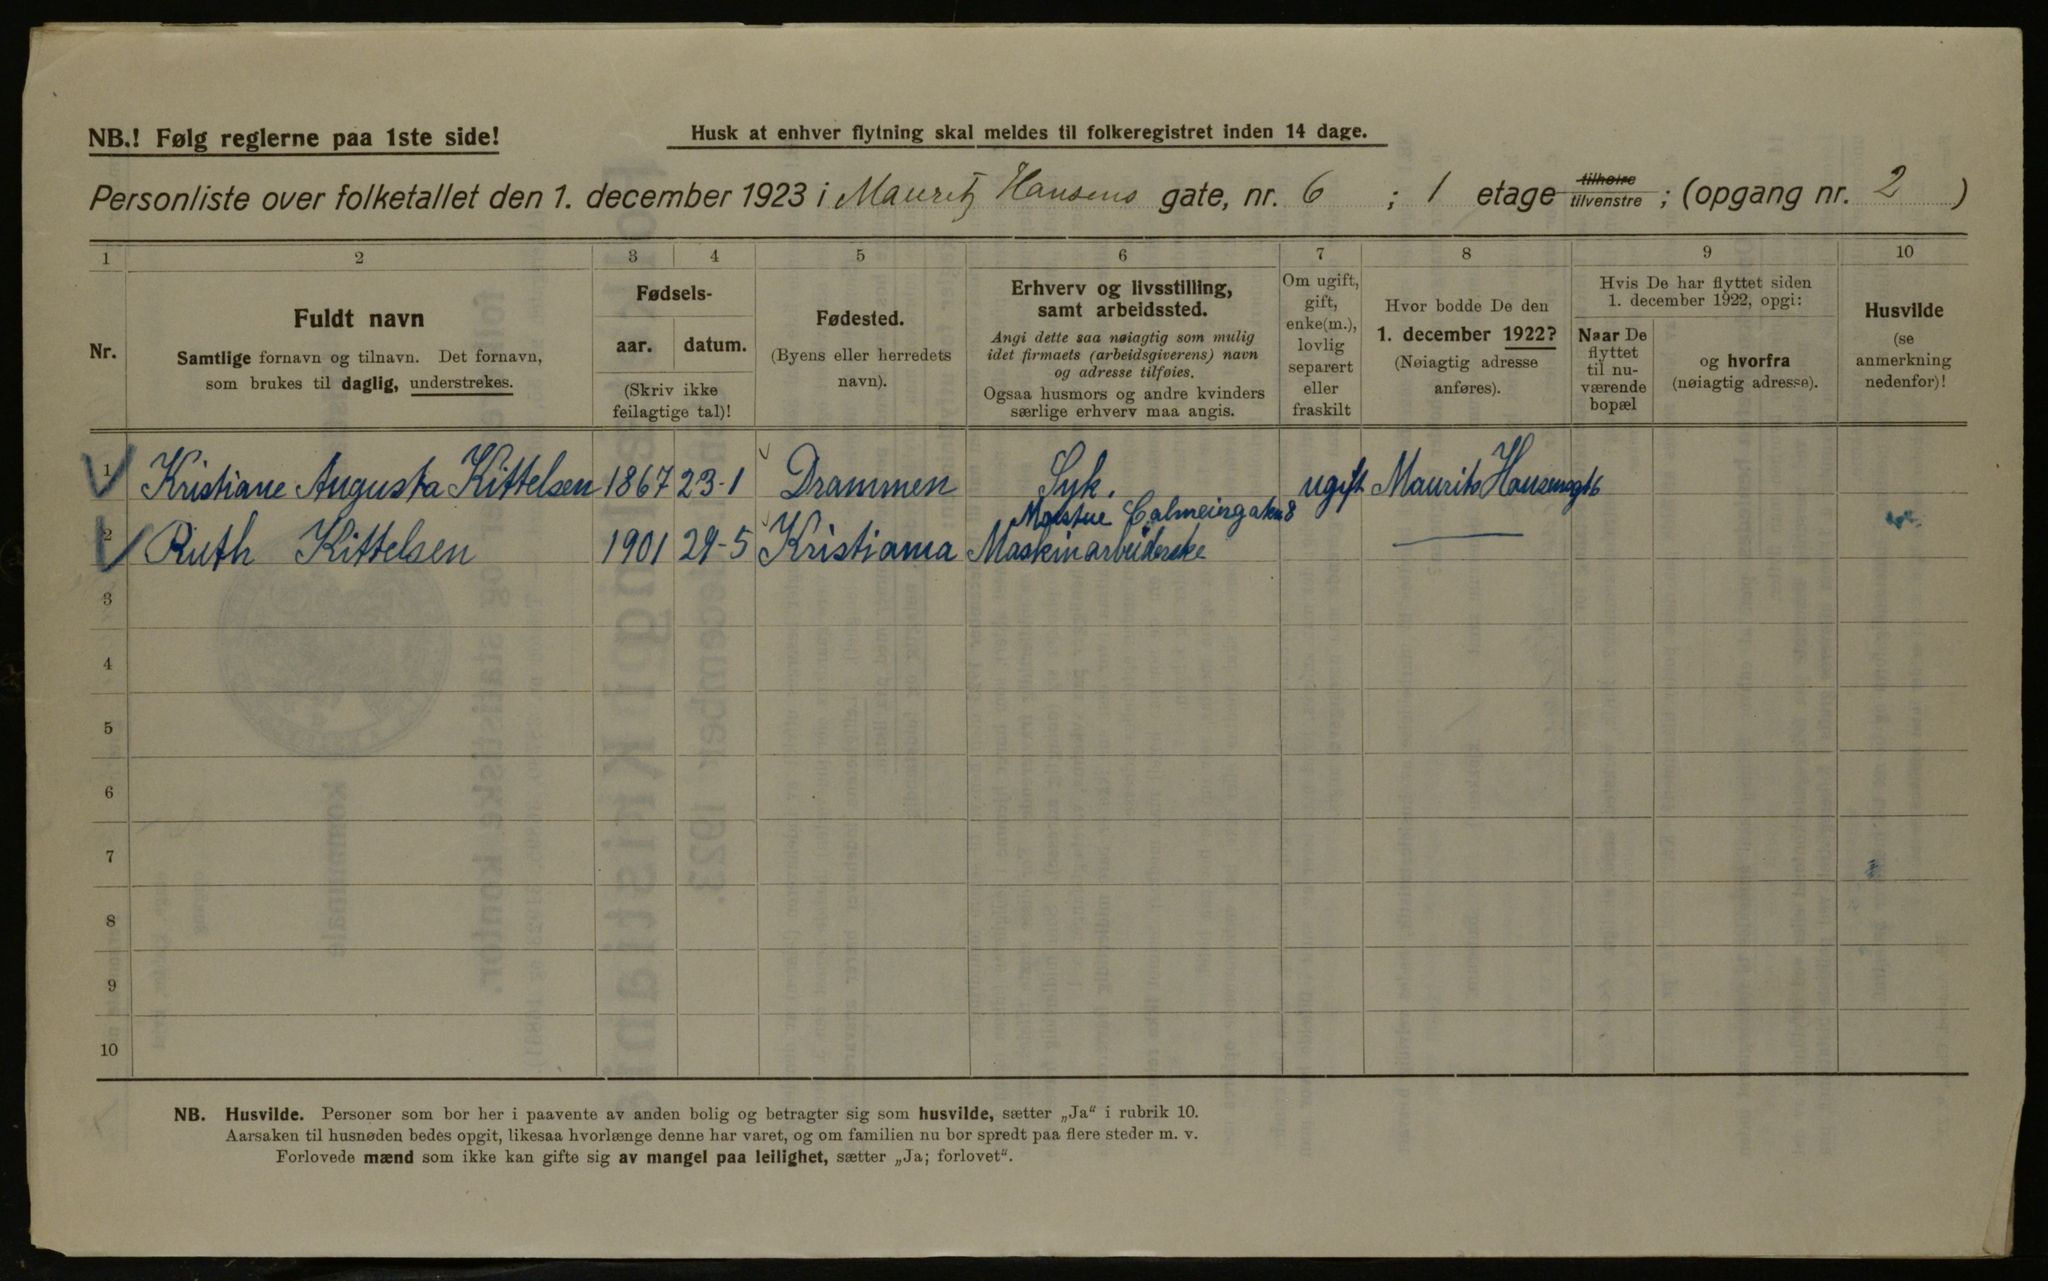 NB.! Følg reglerne paa 1ste side!
Husk at enhver flytning skal meldes til folkeregistret inden 14 dage.
Personliste over folketallet den 1. december 1923 i Mauritz Hansens gate, nr. 6 ; 1 etage tilhøire tilvenstre ; (opgang nr. 2 )
1 2 3 4 5 6 7 8 9 10
Nr.
Fuldt navn
Samtlige fornavn og tilnavn. Det fornavn,
som brukes til daglig, understrekes.
Fødsels-
aar. datum.
(Skriv ikke
feilagtige tal)!
Fødested.
(Byens eller herredets
navn).
Erhverv og livsstilling,
samt arbeidssted.
Angi dette saa nøiagtig som mulig
idet firmaets (arbeidsgiverens) navn
og adresse tilføies.
Ogsaa husmors og andre kvinders
særlige erhverv maa angis.
Om ugift,
gift,
enke(m.),
lovlig
separert
eller
fraskilt
Hvor bodde De den
1. december 1922?
(Nøiagtig adresse
anføres).
Hvis De har flyttet siden
1. december 1922, opgi:
Naar De
flyttet
til nu-
værende
bopæl
og hvorfra
(nøiagtig adresse).
Husvilde
(se
anmerkning
nedenfor)!
1 Kristiane Augusta Kittelsen 1867 23-1 Drammen Syk. ugift Maurits Hansensgt 6
Calmeiergaten 8
2 Ruth Kittelsen 1901 29-5 Kristiania Maskinarbeiderske
3
4
5
6
7
8
9
10
NB. Husvilde. Personer som bor her i paavente av anden bolig og betragter sig som husvilde, sætter „Ja“ i rubrik 10.
Aarsaken til husnøden bedes opgit, likesaa hvorlænge denne har varet, og om familien nu bor spredt paa flere steder m. v.
Forlovede mænd som ikke kan gifte sig av mangel paa leilighet, sætter „Ja; forlovet“.